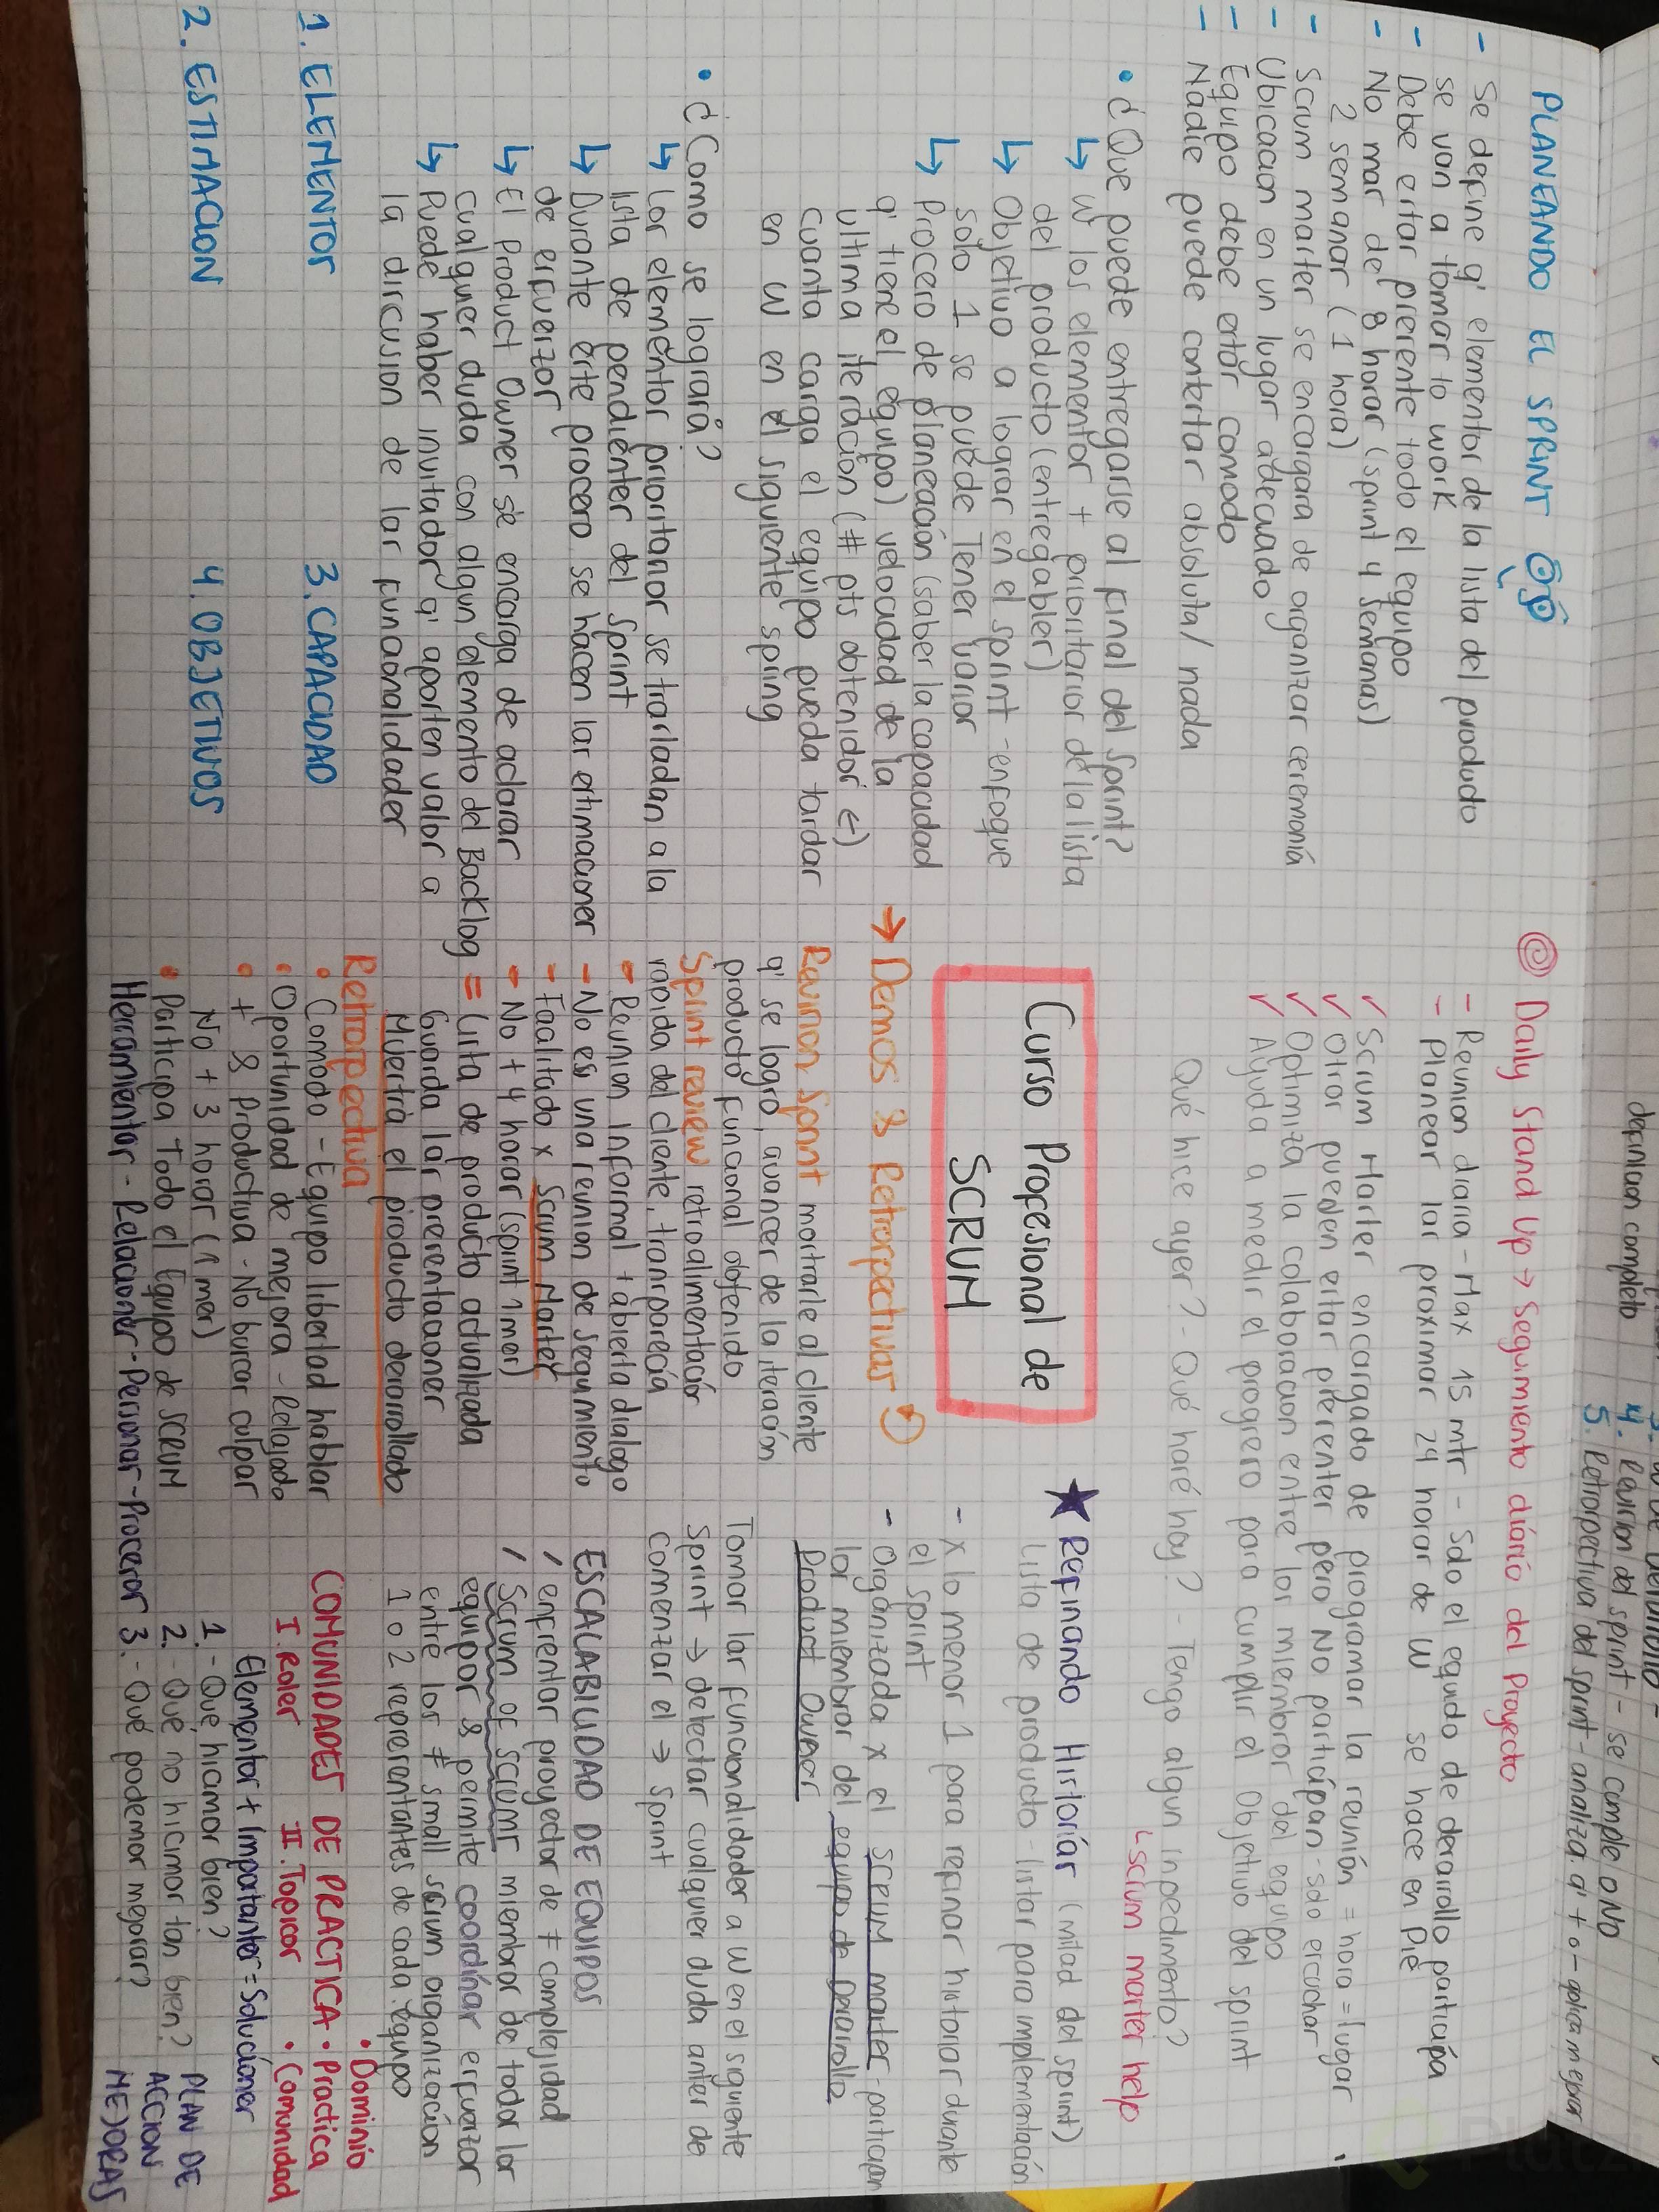 definicion completo
4. Revision del sprint - se cumple o No
5. Retrospectiva del sprint - analiza q' + o - aplican mejoras
PLANEANDO EL SPRINT
- Se define q' elementos de la lista del producto
se van a tomar to work
- Debe estar presente todo el equipo
- No mas de 8 horas (sprint 4 semanas)
2 semanas (1 hora)
- Scrum master se encargara de organizar ceremonia
- Ubicacion en un lugar adecuado
- Equipo debe estar comodo
- Nadie puede contestar absoluta/ nada
• ¿Que puede entregarse al final del sprint?
↳ W los elementos + prioritarios de la lista
del producto (entregables)
↳ Objetivo a lograr en el sprint - enfoque
solo 1 se puede Tener varios
↳ Proceso de planeación (saber la capacidad
q' tiene el equipo) velocidad de la
ultima iteración (# pts obtenidos ←)
cuanta carga el equipo pueda tardar
en W en el siguiente spring
• ¿Como se logrará?
↳ Los elementos prioritarios se trasladan a la
lista de pendientes del Sprint
↳ Durante éste proceso se hacen las estimaciones
de esfuerzos
↳ El Product Owner se encarga de aclarar
cualquier duda con algun elemento del Backlog
↳ Puede haber invitados q' aporten valor a
la discusion de las funcionalidades
1. ELEMENTOS 3. CAPACIDAD
2. ESTIMACION 4. OBJETIVOS
Daily Stand Up → Seguimiento diario del Proyecto
- Reunion diaria - Max 15 mts - Solo el equido de desarrollo participa
- Planear las proximas 24 horas de W se hace en Pie
✓ Scrum Master encargado de programar la reunión = hora = lugar
✓ Otros pueden estar presentes pero No participan - solo escuchar
✓ Optimiza la colaboracion entre los miembros del equipo
✓ Ayuda a medir el progreso para cumplir el Objetivo del sprint
Qué hice ayer? - Qué haré hoy? - Tengo algun inpedimento?
↳ scrum master help
Curso Profesional de
SCRUM
→ Demos & Retrospectivas
Revision Sprint mostrarle al cliente
q' se logró, avances de la iteración
producto funcional obtenido
Sprint review retroalimentación
rapida del cliente, transparecia
• Reunion informal + abierta dialogo
- No es una reunion de seguimiento
- Facilitado x Scrum Master
• No + 4 horas (sprint 1 mes)
= Lista de producto actualizada
Guarda las presentaciones
Muestra el producto desarrollado
Retrospectiva
• Comodo - Equipo libertad hablar
• Oportunidad de mejora - Relajado
• + & Productiva - No buscar culpas
No + 3 horas (1 mes)
• Participa Todo el Equipo de SCRUM
Herramientas - Relaciones - Personas - Procesos
★ Refinando Historias (mitad del sprint)
Lista de producto - listas para implementación
- x lo menos 1 para refinar historias durante
el sprint
- Organizada x el scrum master - participan
los miembros del equipo de desarrollo
Product Owner
Tomar las funcionalidades a W en el siguiente
Sprint → detectar cualquier duda antes de
comenzar el → Sprint
ESCALABILIDAD DE EQUIPOS
/ enfrentar proyectos de ≠ complejidad
/ Scrum of scrums miembros de todos los
equipos & permite coordinar esfuerzos
entre los ≠ small scrum organización
1 o 2 representantes de cada equipo
COMUNIDADES DE PRACTICA
• Dominio
• Practica
• Comunidad
I. Roles II. Topicos
Elementos + Impotantes = Soluciones
1. - Qué hicimos bien?
2. - Qué no hicimos tan bien?
3. - Qué podemos mejorar?
PLAN DE
ACCION
MEJORAS
Platzi